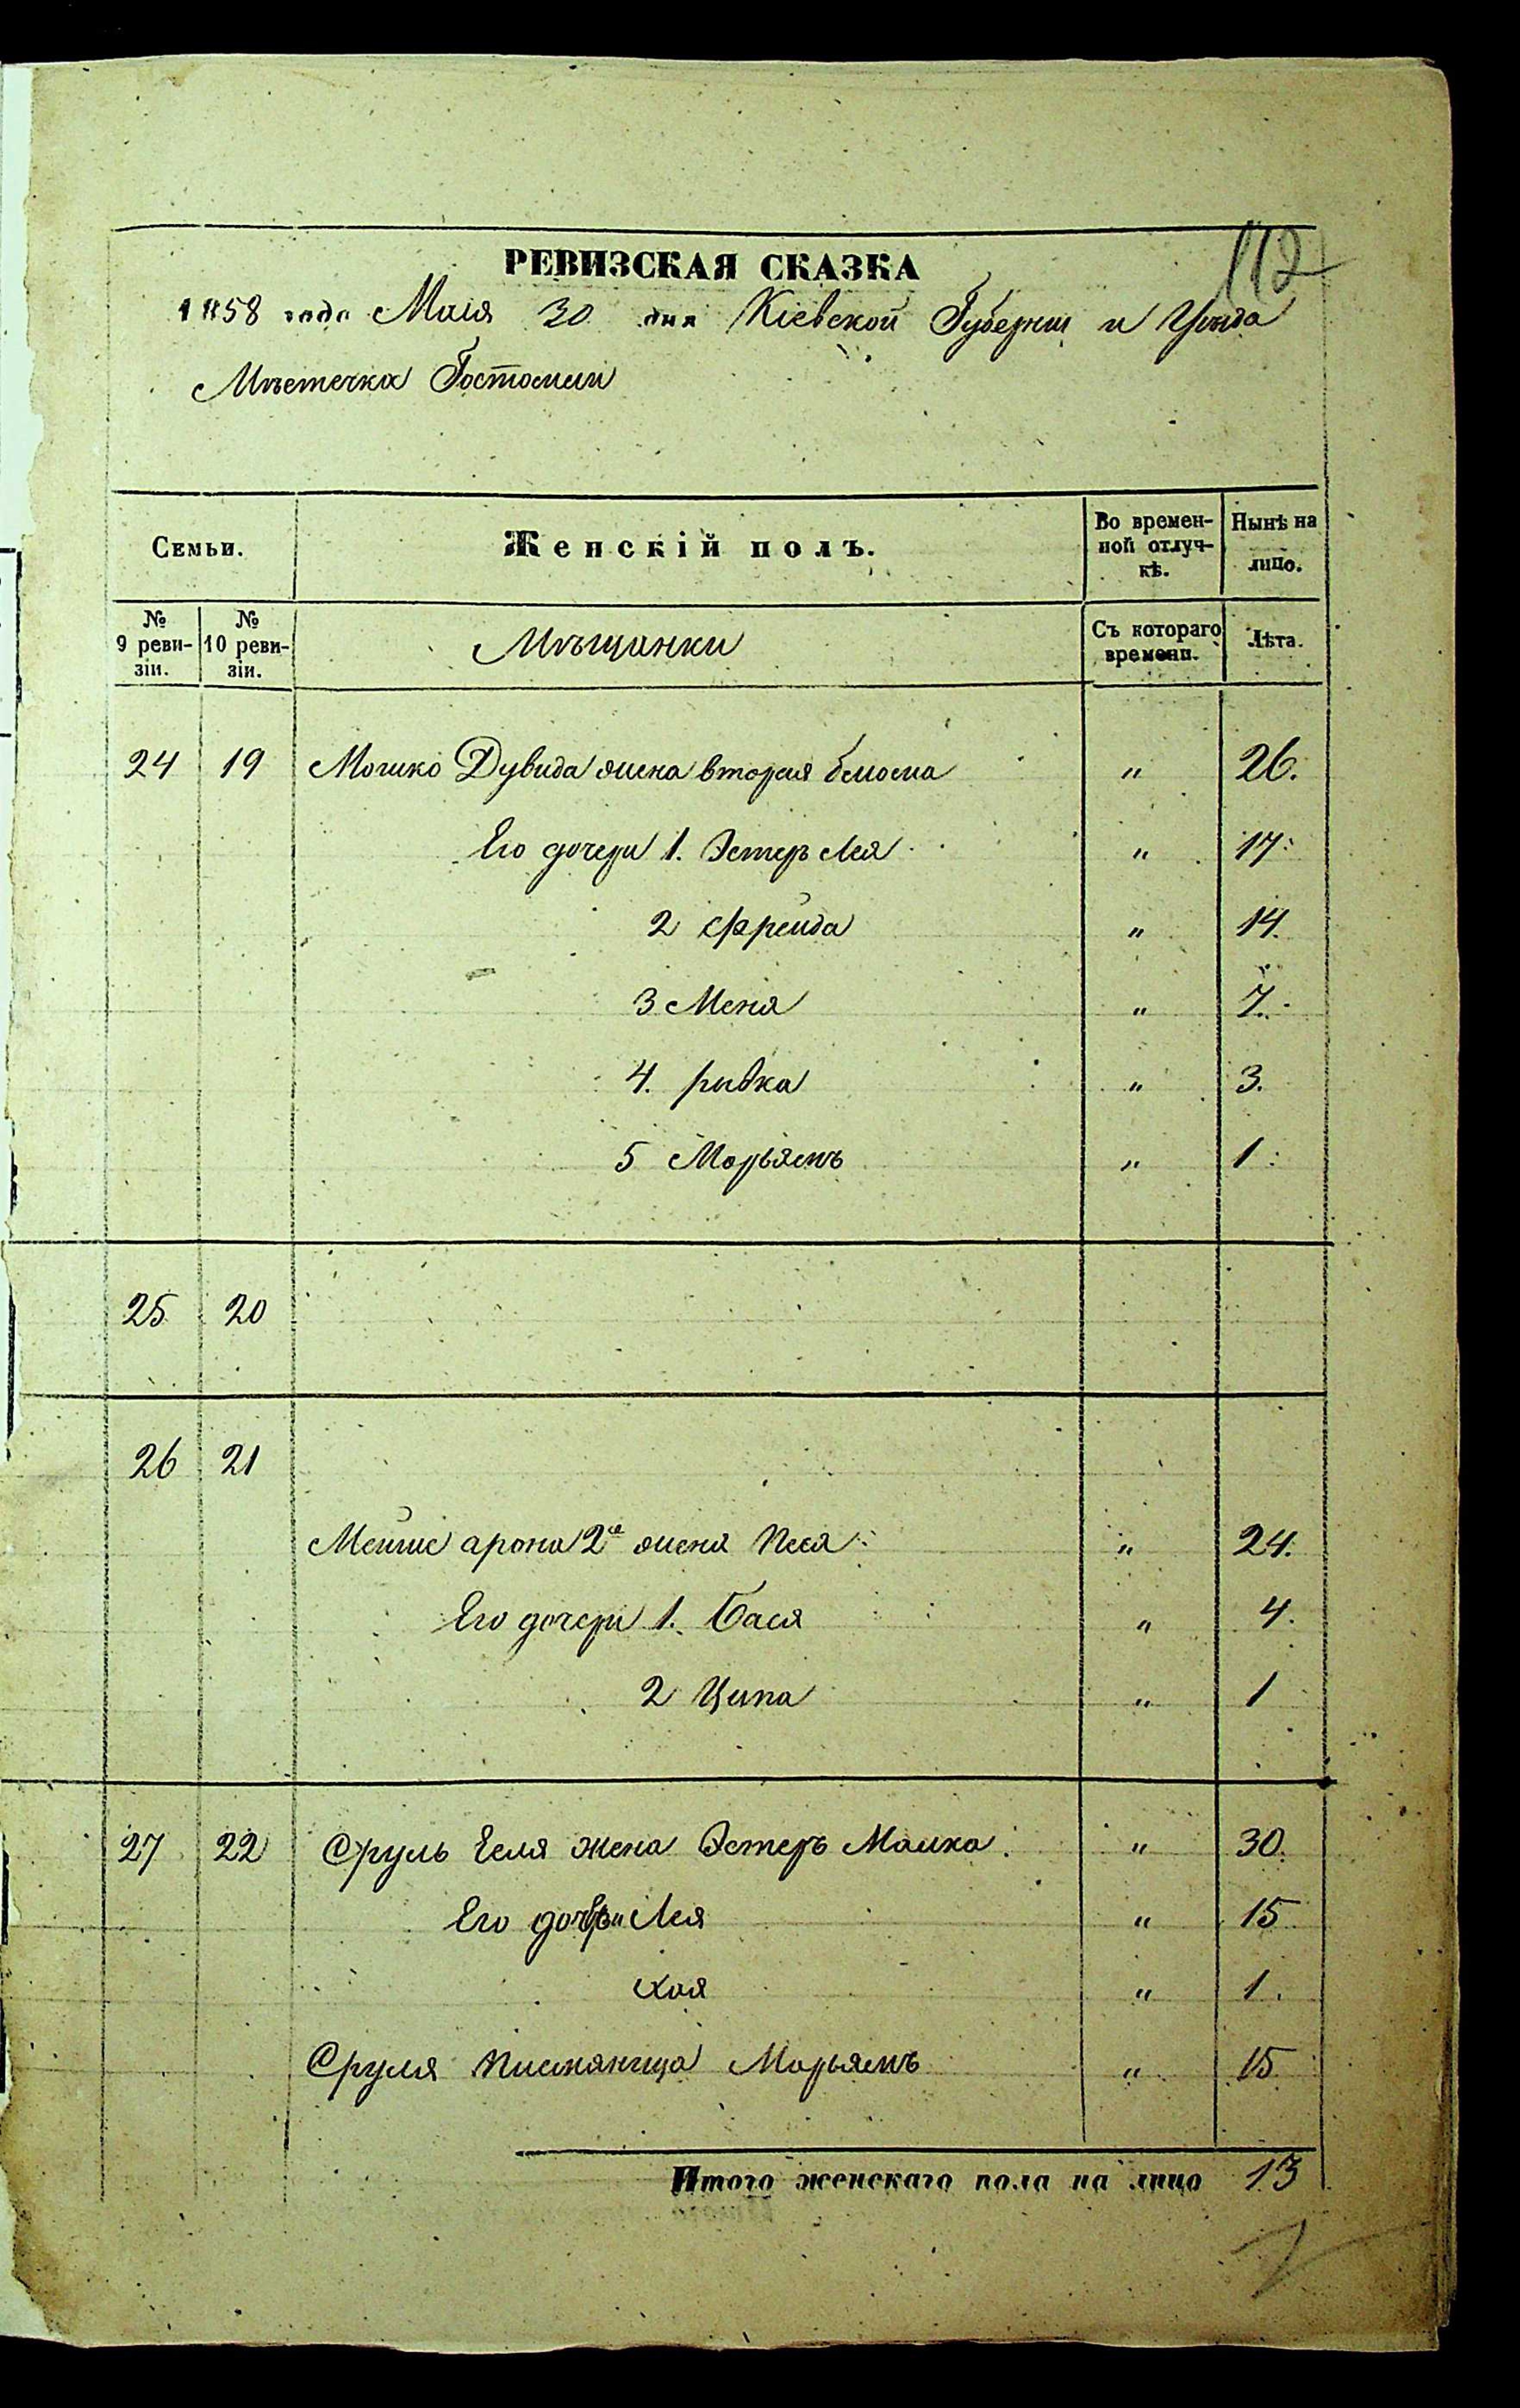 112
РЕВИЗСКАЯ СКАЗКА
1858 года Маія 30 дня Кіевской Губерніи и Уѣзда
Мѣстечка Гостомля
Семьи.
Женскій полъ.
Во времен-
ной отлуч-
кѣ.
Нынѣ на
лицо.
№
9 реви-
зіи.
№
10 реви-
зіи.
Мѣщанки
Съ котораго
времени.
Лѣта.
24 19 Мошко Дувида жена вторая " 26.
Его дочери 1. Эстеръ Лея " 17
2 Фрейда " 14.
3 Меня " 7.
4. ривка " 3.
5 Марьямъ " 1
25 20
26 21
арона 2я жена Песя " 24.
Его дочери 1. Бася " 4.
2 Ципа " 1
27 22 Сруль Геля жена Эстеръ Малка " 30.
Его дочери Лея " 15
Хая " 1.
Сруля племяница Марьямъ " 15
Итого женскаго пола на лицо 13